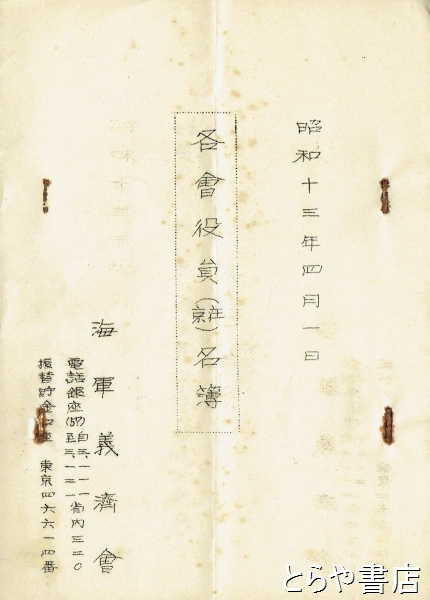 昭和十三年四月一日
各會役員(在京)名簿
海軍義濟會
電話銀座(57)自三、一一一至三、一二一省内三二〇
振替貯金口座 東京四六六一四番
とらや書店